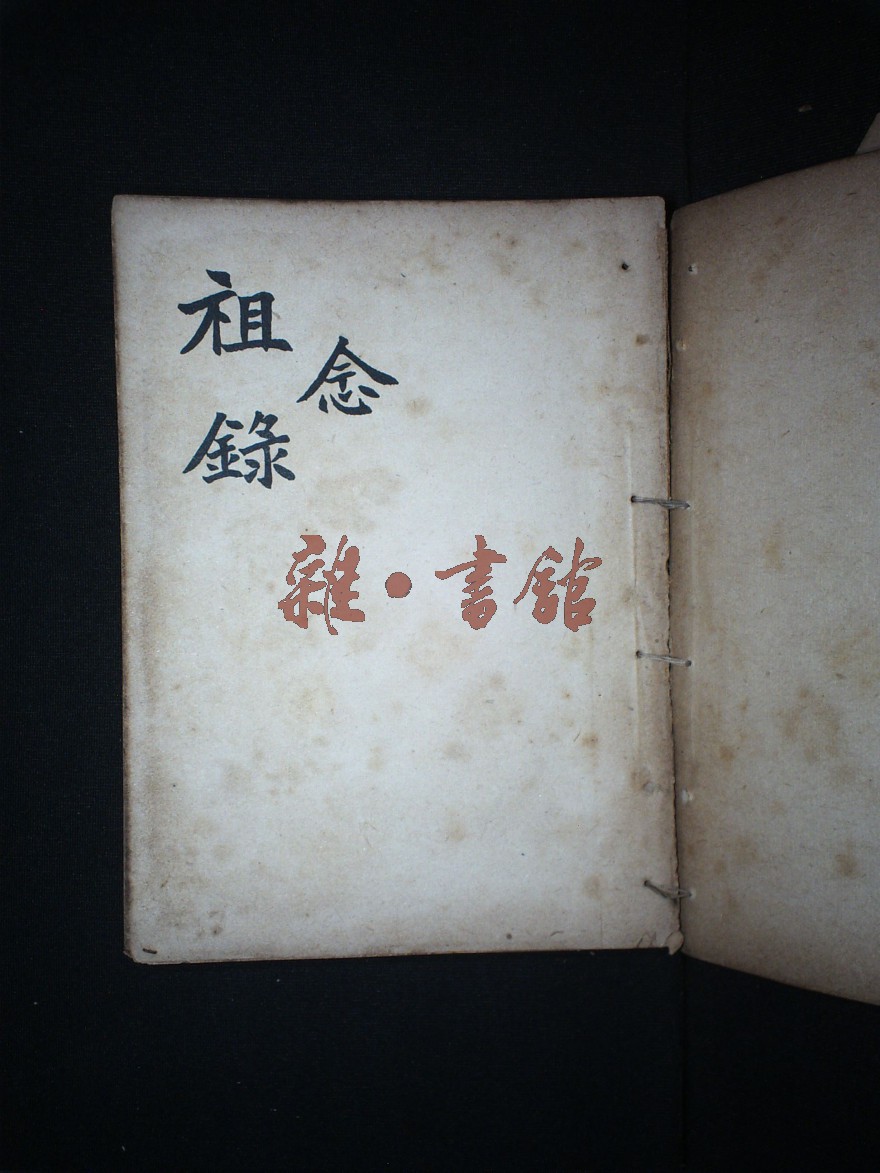 念
祖錄
雜·書館